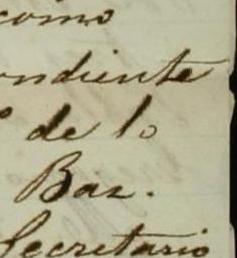 como
ondiente
de lo
Bar.
Secretario